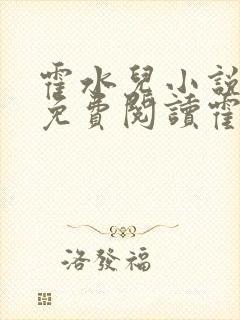 霍水兒小說
免費閱讀霍
洛發福